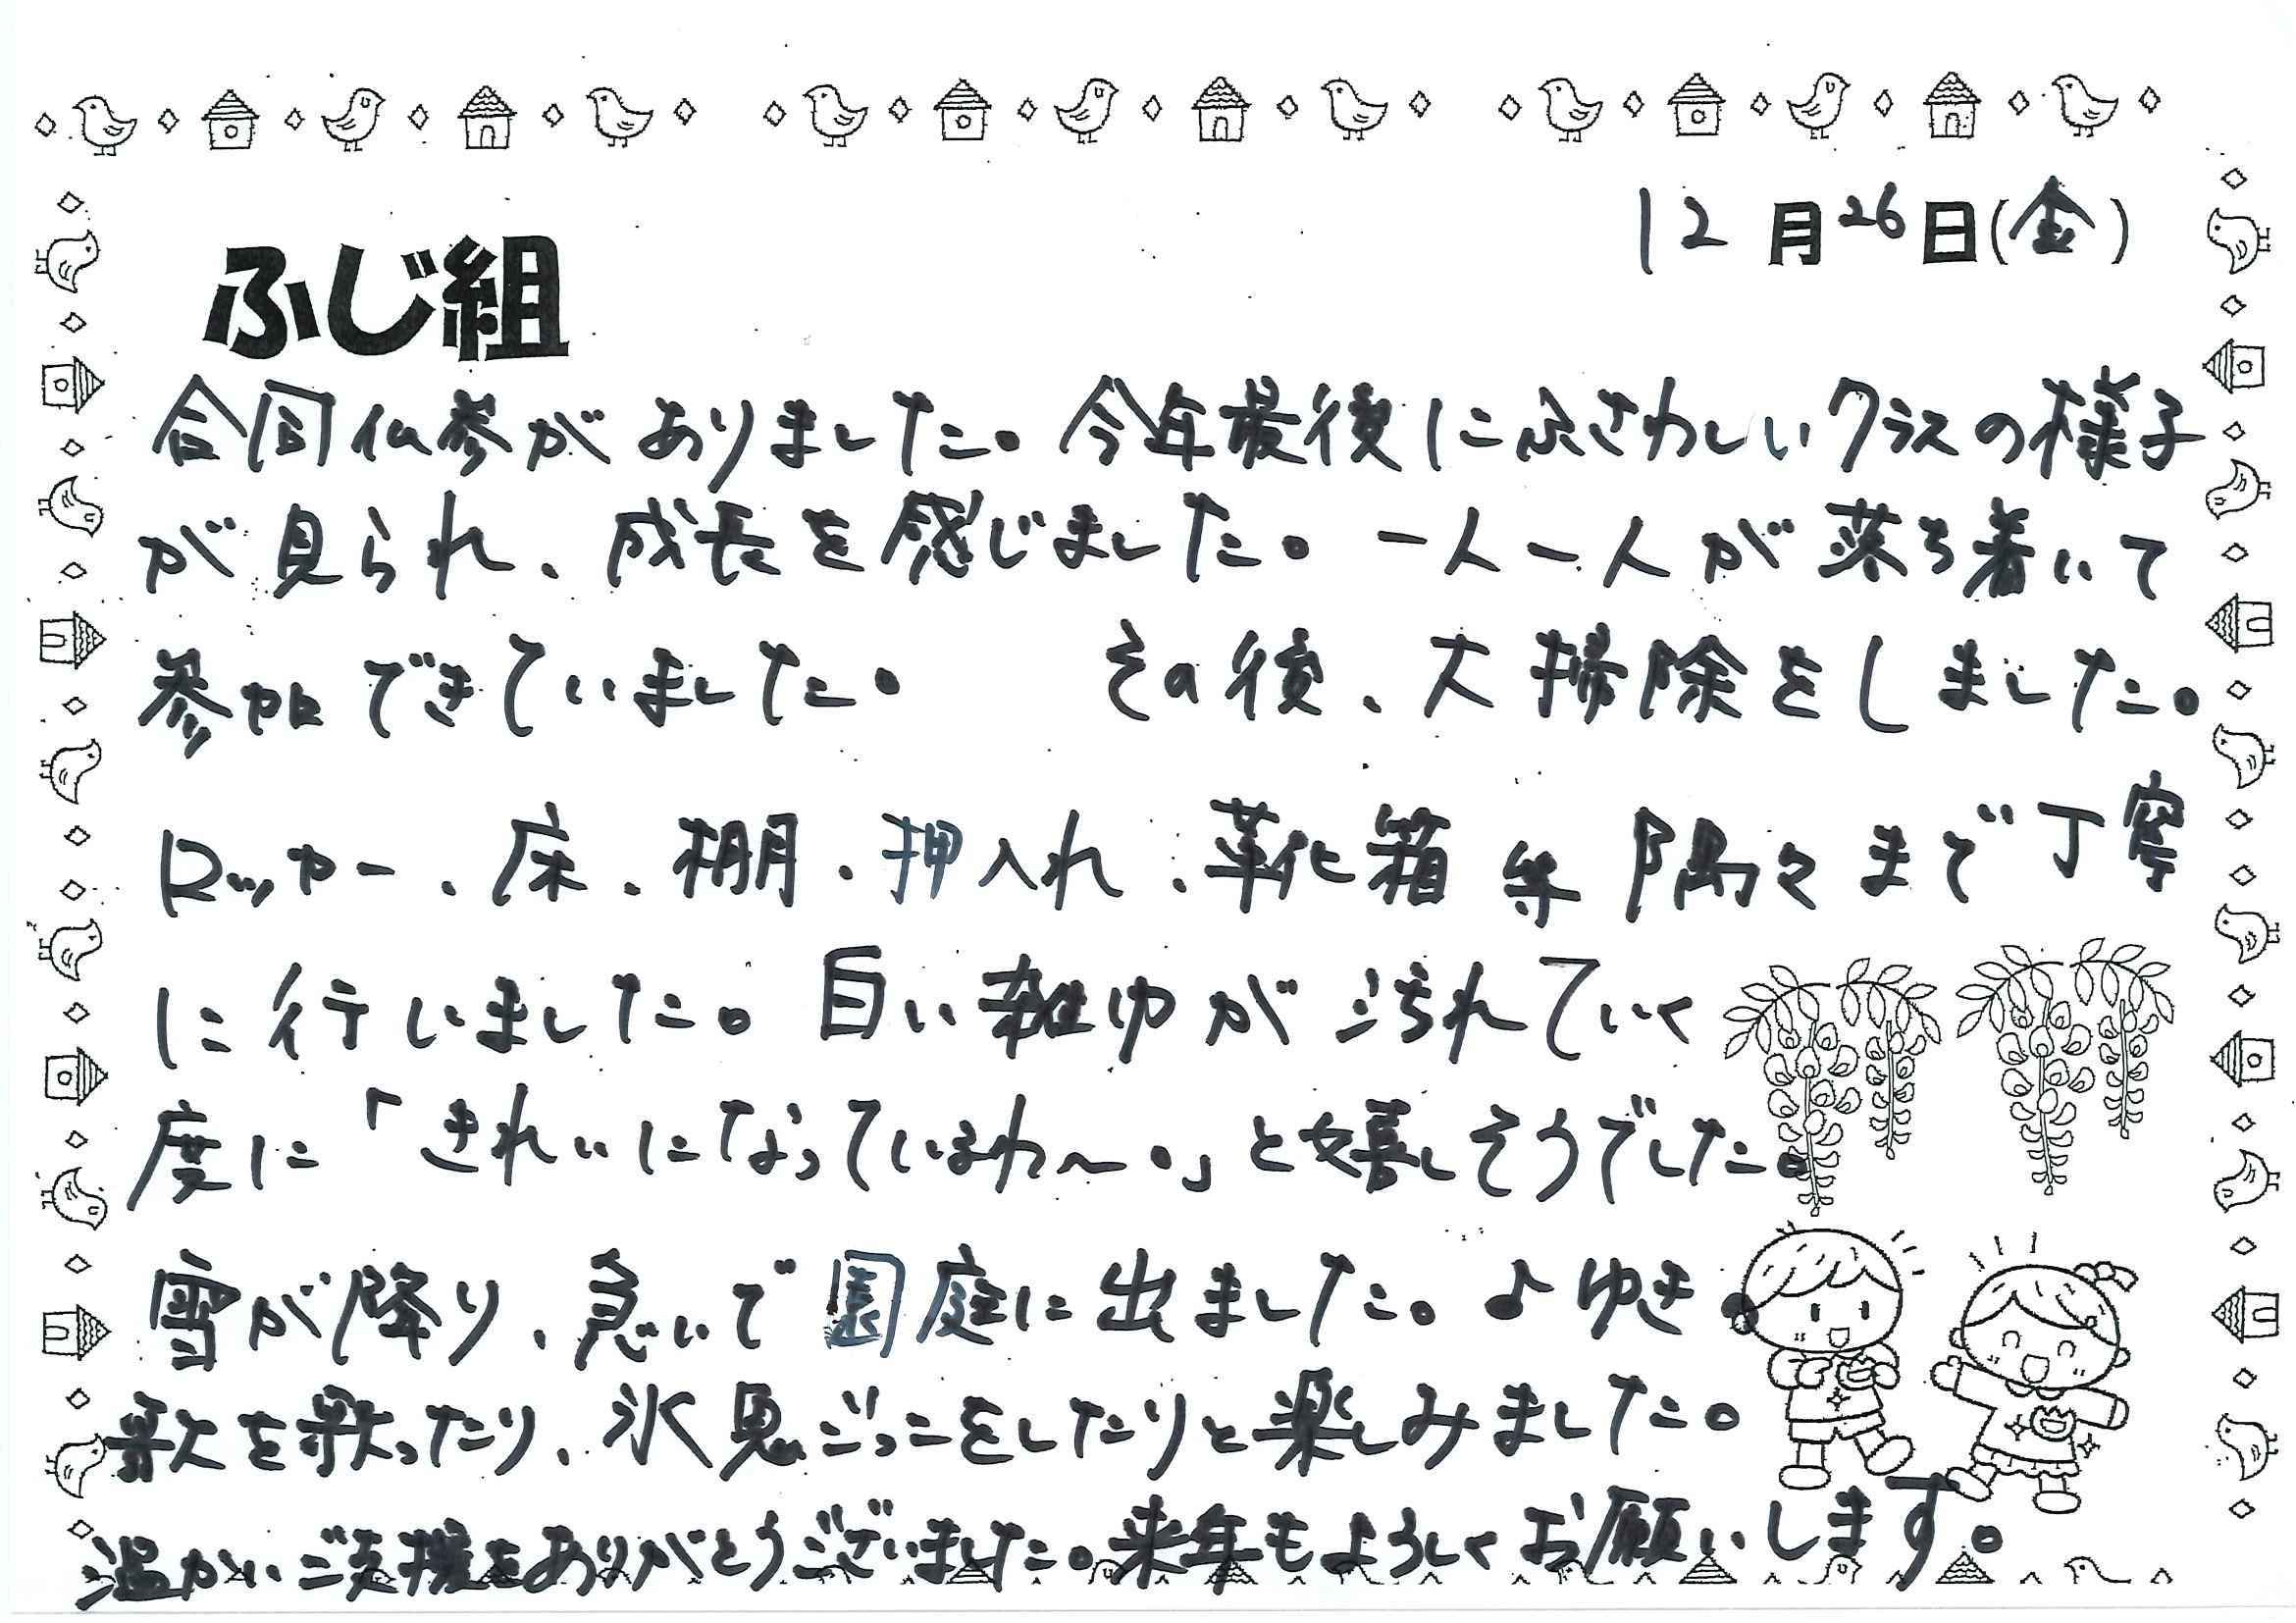 12月26日(金)
ふじ組
合同仏参がありました。今年最後にふさわしいクラスの様子
が見られ、成長を感じました。一人一人が落ち着いて
参加できていました。 その後、大掃除をしました。
ロッカー、床、棚、押入れ、靴箱等隅々まで丁寧
に行いました。白い雑巾が汚れていく
度に「きれいになっているわ〜。」と嬉しそうでした。
雪が降り、急いで園庭に出ました。♪ゆき
歌を歌ったり、氷鬼ごっこをしたりと楽しみました。
温かいご支援をありがとうございました。来年もよろしくお願いします。